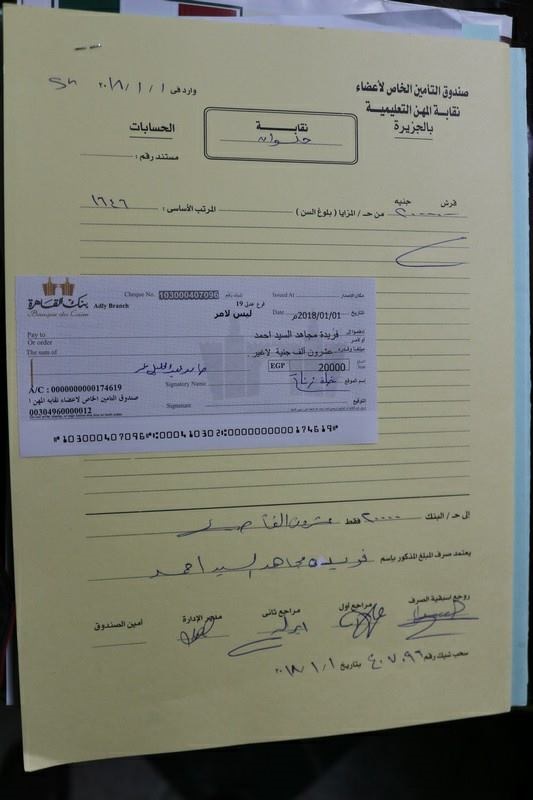 صندوق التأمين الخاص لأعضاء
نقابة المهن التعليمية
بالجزيرة
وارد فى ٢٠١٨/١/١
نقابة
حلوان
الحسابات
مستند رقم :
قرش جنيه
٢٠٠٠٠ من حـ / المزايا ( بلوغ السن ) المرتب الأساسى : ١٦٤٦
بنك القاهرة
Banque du Caire
Adly Branch
Cheque No. 103000407096 شيك رقم
فرع عدلى 19
ليس لامر
Issued At مكان الإصدار
Date 2018/01/01م التاريخ
Pay to
Or order
ادفعوا الى
أو لأمر
فريدة مجاهد السيد احمد
The sum of
مبلغا وقدره عشرون ألف جنية لاغير
EGP 20000
A/C : 0000000000174619
صندوق التامين الخاص لاعضاء نقابه المهن ا
00304960000012
Signatory Name إسم الموقع
Signature التوقيع
103000407096 00041030 0000000000174619
إلى حـ / البنك ٢٠٠٠٠ فقط عشرون الفا
يعتمد صرف المبلغ المذكور بإسم فريدة مجاهد السيد احمد
روجع اسبقية الصرف مراجع أول مراجع ثانى مدير الإدارة أمين الصندوق
سحب شيك رقم ٤٠٧٠٩٦ بتاريخ ٢٠١٨/١/١